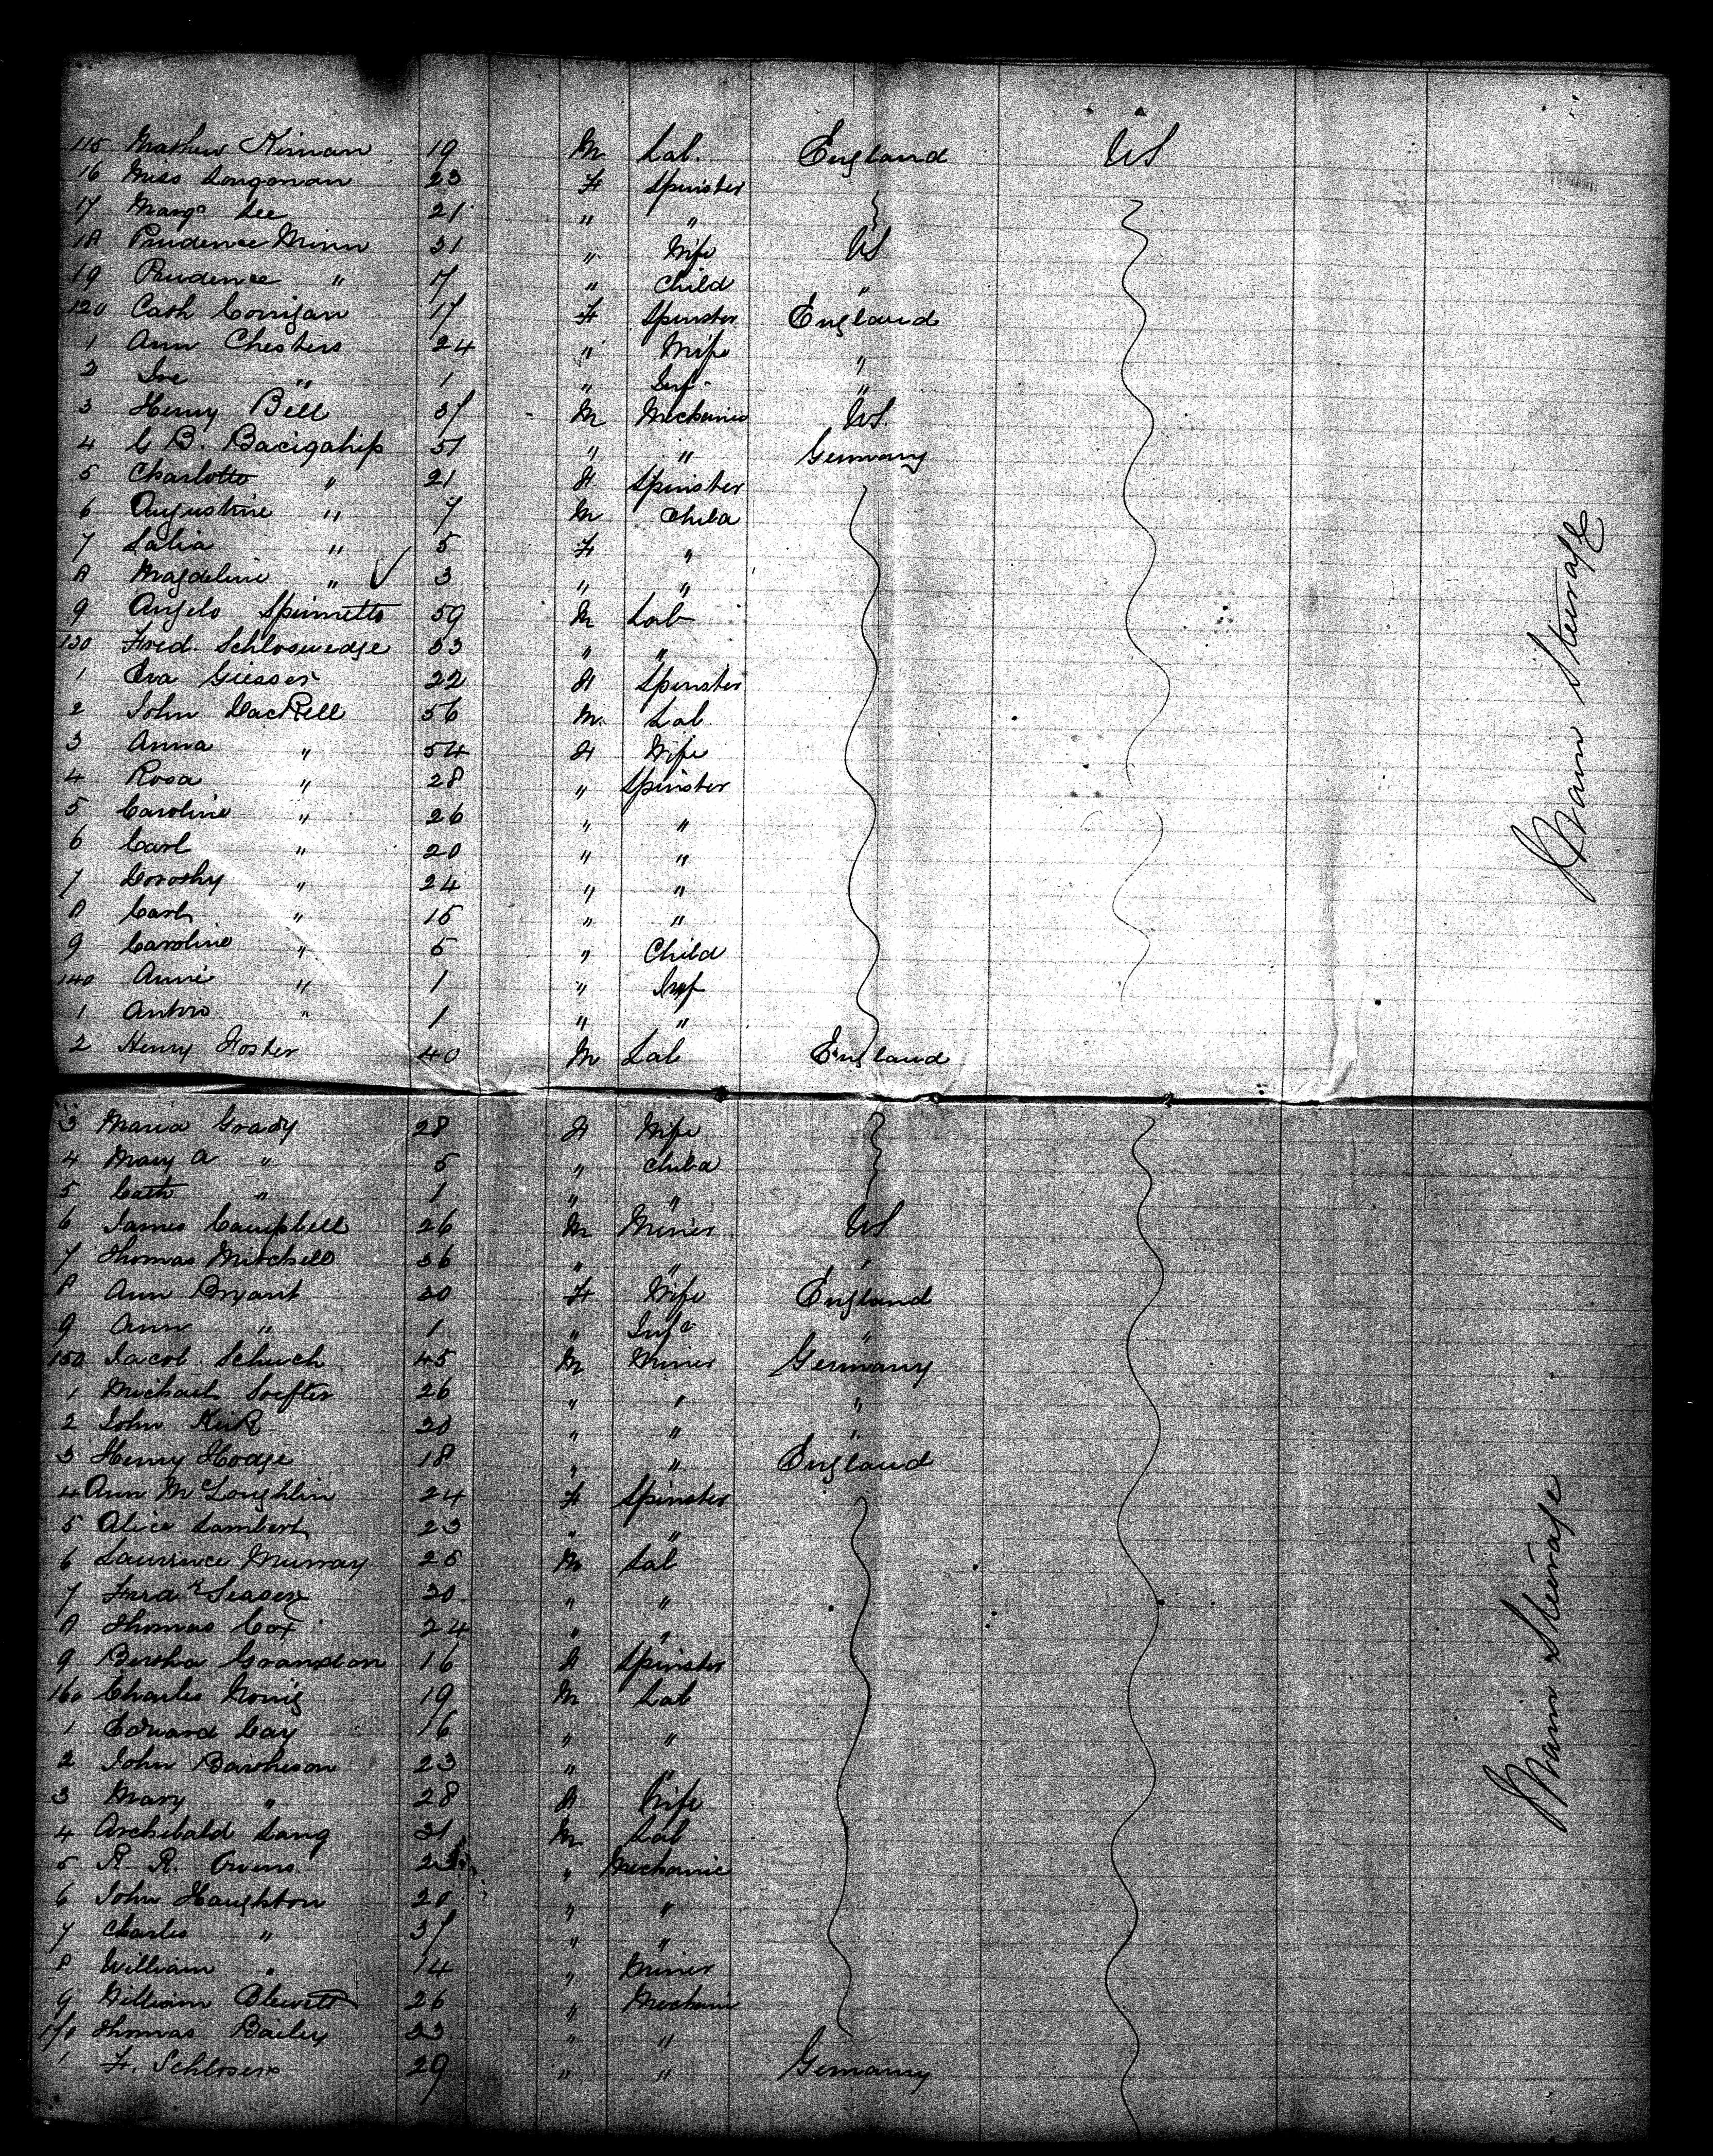 115 Mathew Kirnan 19 M Lab. England US
16 Miss Longonan 23 F Spinster
17 Margt Lee 21 " "
18 Prudence Minn 31 " Wife US
19 Prudence " 7 " Child "
120 Cath Corrigan 17 F Spinster England
1 Ann Chesters 24 " Wife "
2 " 1 " Inf. "
3 Henry Bell 37 M Mechanic US.
4 C B. Bacigahip 51 " " Germany
5 Charlotte " 21 F Spinster
6 Augustine " 7 M Child
7 Lalia " 5 F "
8 Magdeline " 3 " "
9 Angelo Spinnetto 59 M Lab
130 Fred. Schloswedge 53 " "
1 Eva Giesser 22 F Spinster
2 John Mackell 56 M. Lab
3 Anna " 54 F Wife
4 Rosa " 28 " Spinster
5 Caroline " 26 " "
6 Carl " 20 " "
7 Dorothy " 24 " "
8 Carl " 15 " "
9 Caroline " 5 " Child
140 Anni " 1 " Inf
1 Anton " 1 " "
2 Henry Foster 40 M Lab England
Main Steerage
3 Maria Grady 28 F Wife
4 Mary A " 5 " Child
5 Cath " 1 " "
6 James Campbell 26 M Miner US
7 Thomas Mitchell 36 " " "
8 Ann Bryant 30 F Wife England
9 Ann " 1 " Inft "
150 Jacob Schuch 45 M Miner Germany
1 Michael Loefter 26 " " "
2 John Kirk 20 " " "
3 Henry Hodge 18 " " England
4 Ann McLoughlin 24 F Spinster
5 Alice Lambert 23 " "
6 Laurence Murray 25 M Lab
7 Fredk 30 " "
8 Thomas Cox 24 " "
9 Bertha Granston 16 F Spinster
160 Charles 19 M Lab
1 Edward Cay 16 " "
2 John Batcheson 23 " "
3 Mary " 28 F Wife
4 Archibald Lang 31 M Lab
5 R. R. Owens " Mechanic
6 John Haughton 20 " "
7 Charles " 37 " "
8 William " 14 " Miner
9 William Blewett 26 " Mechanic
170 Thomas Bailey 23 " "
1 F. Schlosers 29 " " Germany
Main Steerage